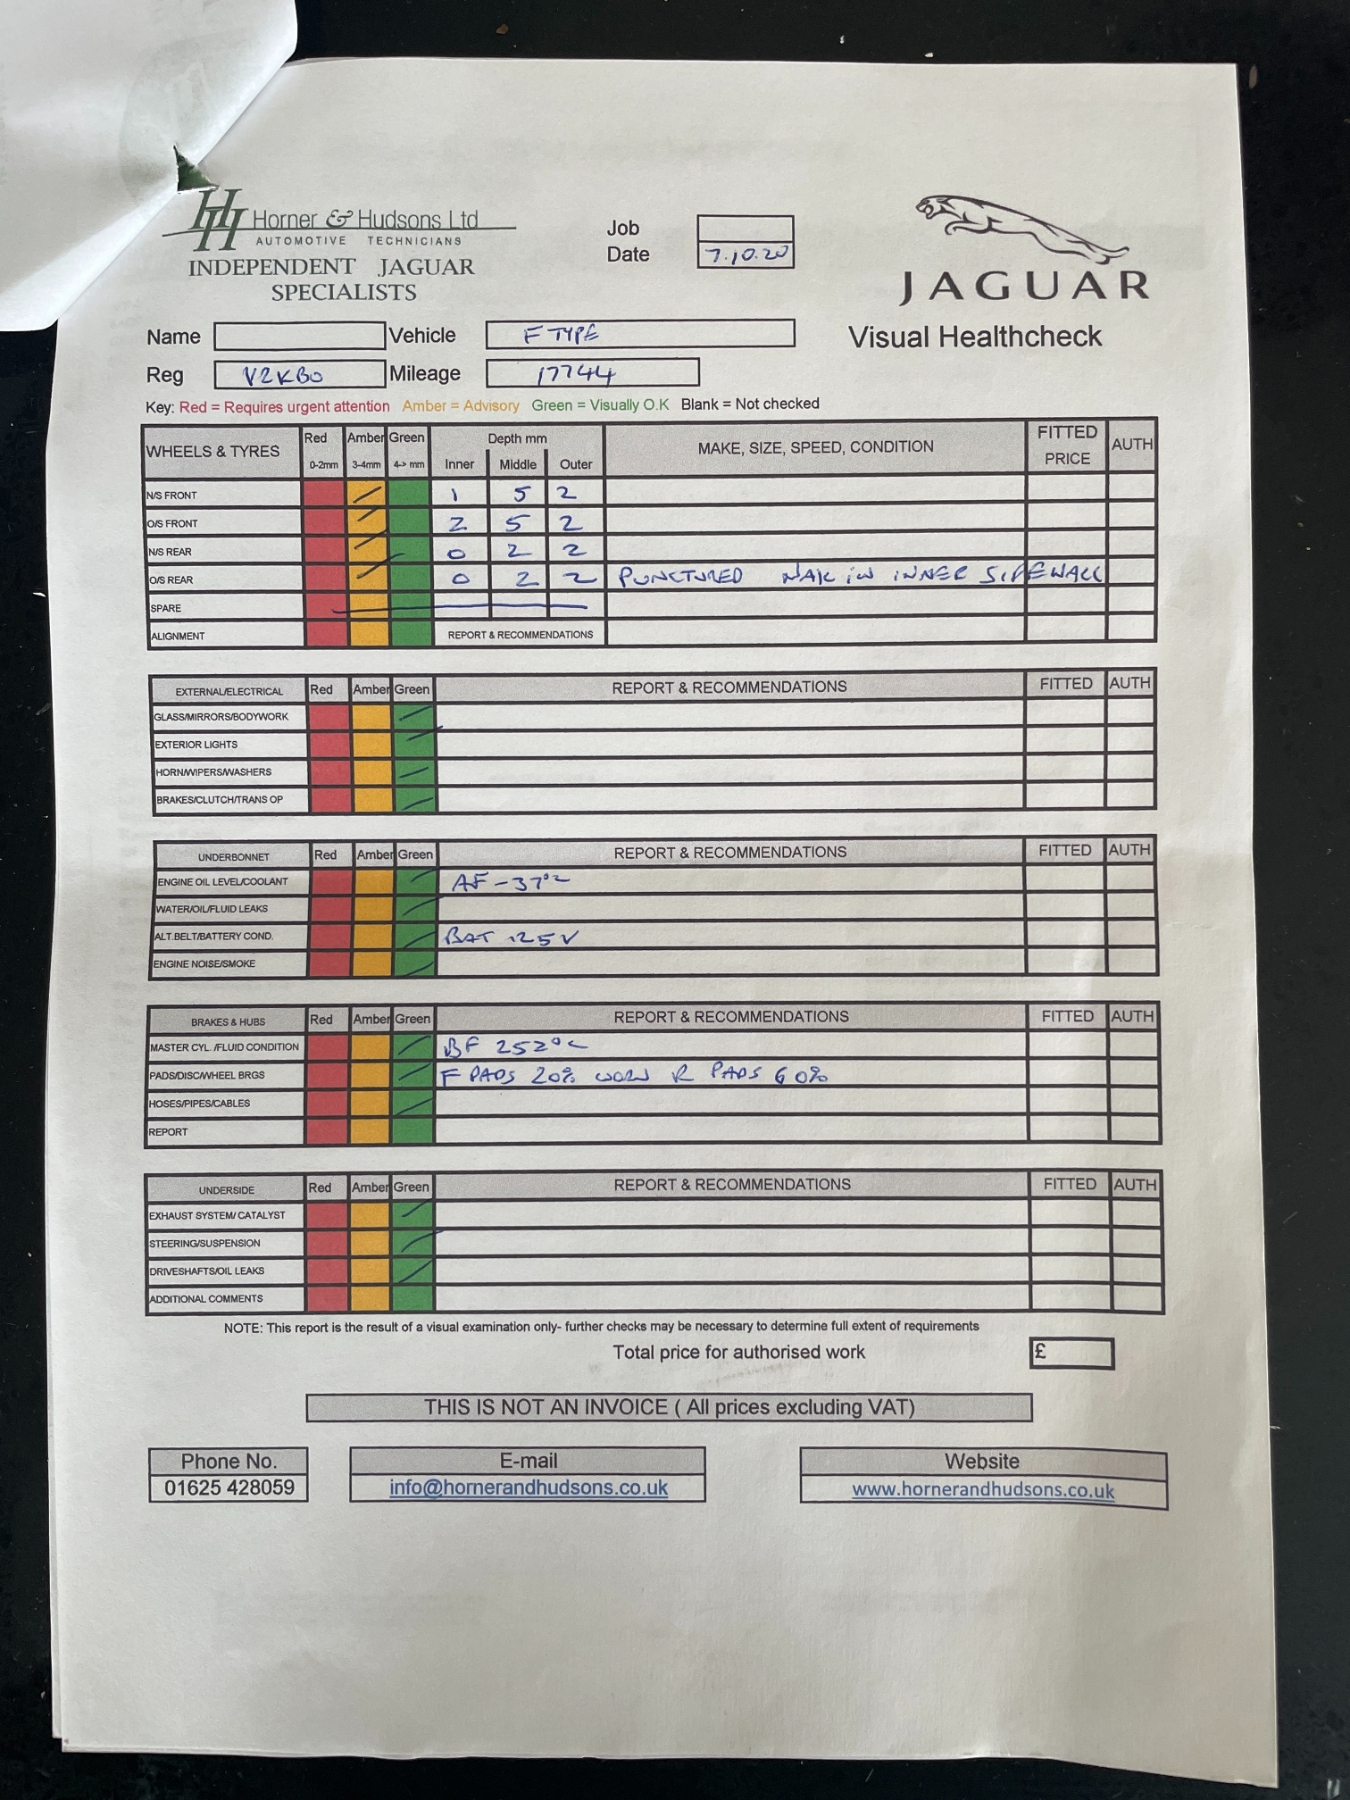 HH Horner & Hudsons Ltd
AUTOMOTIVE TECHNICIANS
INDEPENDENT JAGUAR
SPECIALISTS
Job
Date 7.10.20
JAGUAR
Visual Healthcheck
Name Vehicle F TYPE
Reg V2KBO Mileage 17744
Key: Red = Requires urgent attention Amber = Advisory Green = Visually O.K Blank = Not checked
WHEELS & TYRES Red Amber Green Depth mm MAKE, SIZE, SPEED, CONDITION FITTED PRICE AUTH
0-2mm 3-4mm 4-> mm Inner Middle Outer
N/S FRONT 1 5 2
O/S FRONT 2 5 2
N/S REAR 0 2 2
O/S REAR 0 2 2 PUNCTURED NAIL IN INNER SIDEWALL
SPARE
ALIGNMENT REPORT & RECOMMENDATIONS
EXTERNAL/ELECTRICAL Red Amber Green REPORT & RECOMMENDATIONS FITTED AUTH
GLASS/MIRRORS/BODYWORK
EXTERIOR LIGHTS
HORN/WIPERS/WASHERS
BRAKES/CLUTCH/TRANS OP
UNDERBONNET Red Amber Green REPORT & RECOMMENDATIONS FITTED AUTH
ENGINE OIL LEVEL/COOLANT AF -37°C
WATER/OIL/FLUID LEAKS
ALT.BELT/BATTERY COND. BAT 12.5V
ENGINE NOISE/SMOKE
BRAKES & HUBS Red Amber Green REPORT & RECOMMENDATIONS FITTED AUTH
MASTER CYL. /FLUID CONDITION BF 252°C
PADS/DISC/WHEEL BRGS F PADS 20% WORN R PADS 60%
HOSES/PIPES/CABLES
REPORT
UNDERSIDE Red Amber Green REPORT & RECOMMENDATIONS FITTED AUTH
EXHAUST SYSTEM/ CATALYST
STEERING/SUSPENSION
DRIVESHAFTS/OIL LEAKS
ADDITIONAL COMMENTS
NOTE: This report is the result of a visual examination only- further checks may be necessary to determine full extent of requirements
Total price for authorised work £
THIS IS NOT AN INVOICE ( All prices excluding VAT)
Phone No. E-mail Website
01625 428059 info@hornerandhudsons.co.uk www.hornerandhudsons.co.uk